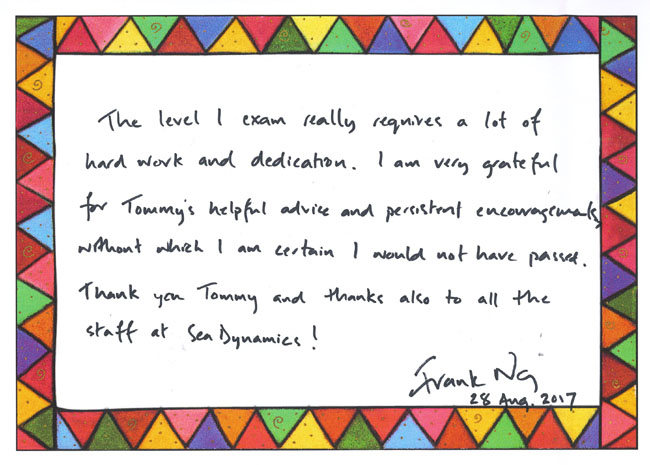 The level 1 exam really requires a lot of
hard work and dedication. I am very grateful
for Tommy's helpful advice and persistent encouragements,
without which I am certain I would not have passed.
Thank you Tommy and thanks also to all the
staff at Sea Dynamics!
Frank Ng
28 Aug. 2017